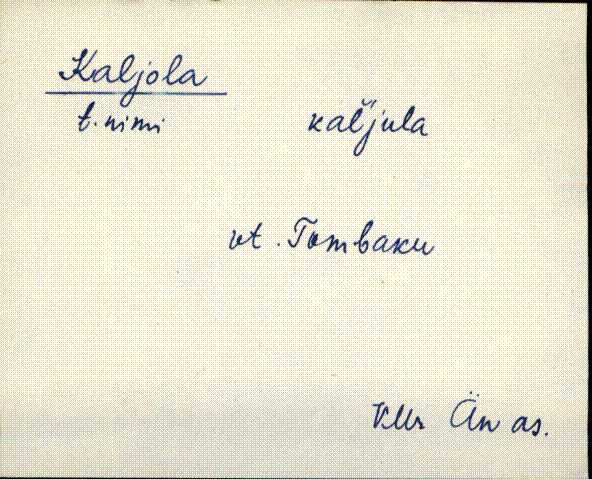 Kaljola
t. nimi kaľjula
vt. Tombaku
VMr Än as.